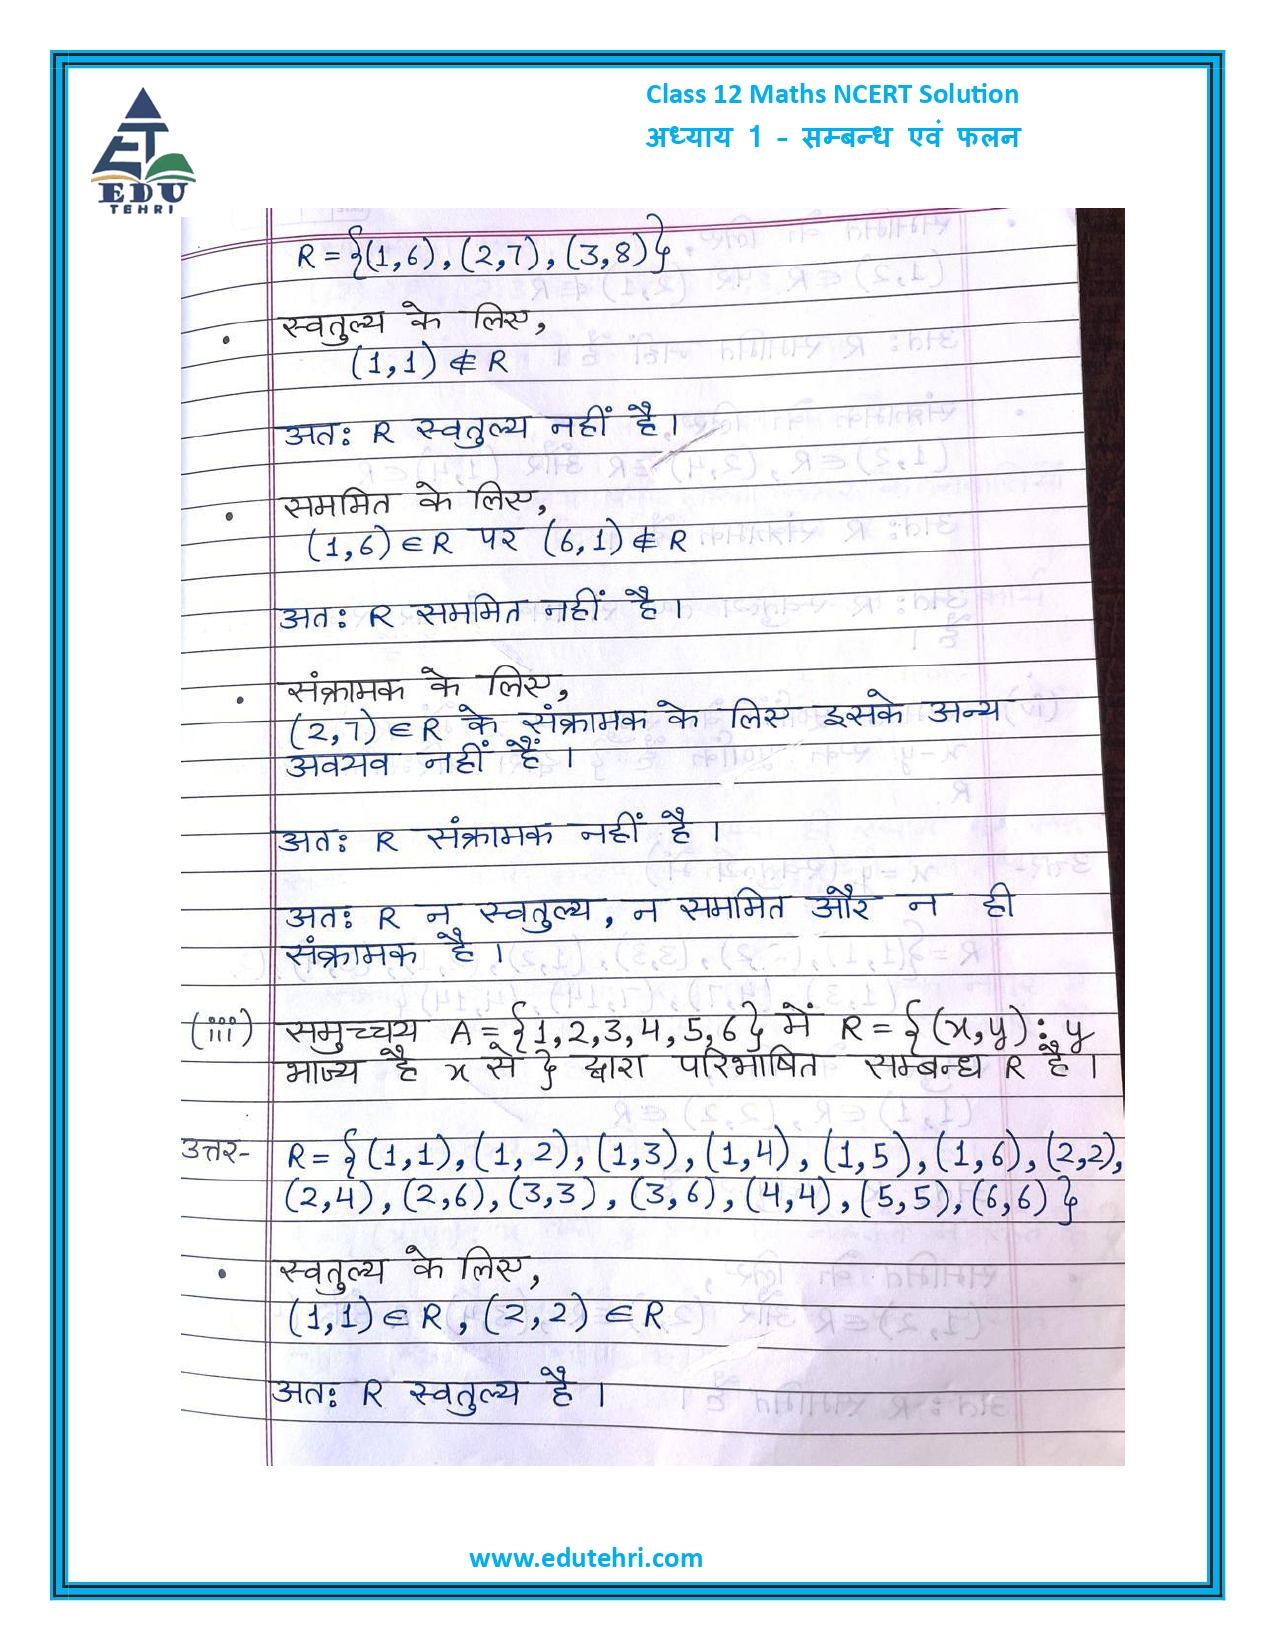 Class 12 Maths NCERT Solution
अध्याय 1 - सम्बन्ध एवं फलन
ET
EDU
TEHRI
R = {(1,6), (2,7), (3,8)}
• स्वतुल्य के लिए,
(1,1) ∉ R
अतः R स्वतुल्य नहीं है।
• सममित के लिए,
(1,6) ∈ R पर (6,1) ∉ R
अतः R सममित नहीं है।
• संक्रामक के लिए,
(2,7) ∈ R के संक्रामक के लिए इसके अन्य
अवयव नहीं हैं।
अतः R संक्रामक नहीं है।
अतः R न स्वतुल्य, न सममित और न ही
संक्रामक है।
(iii) समुच्चय A = {1,2,3,4,5,6} में R = {(x,y) : y
भाज्य है x से } द्वारा परिभाषित सम्बन्ध R है।
उत्तर- R = {(1,1), (1,2), (1,3), (1,4), (1,5), (1,6), (2,2),
(2,4), (2,6), (3,3), (3,6), (4,4), (5,5), (6,6)}
• स्वतुल्य के लिए,
(1,1) ∈ R, (2,2) ∈ R
अतः R स्वतुल्य है।
www.edutehri.com